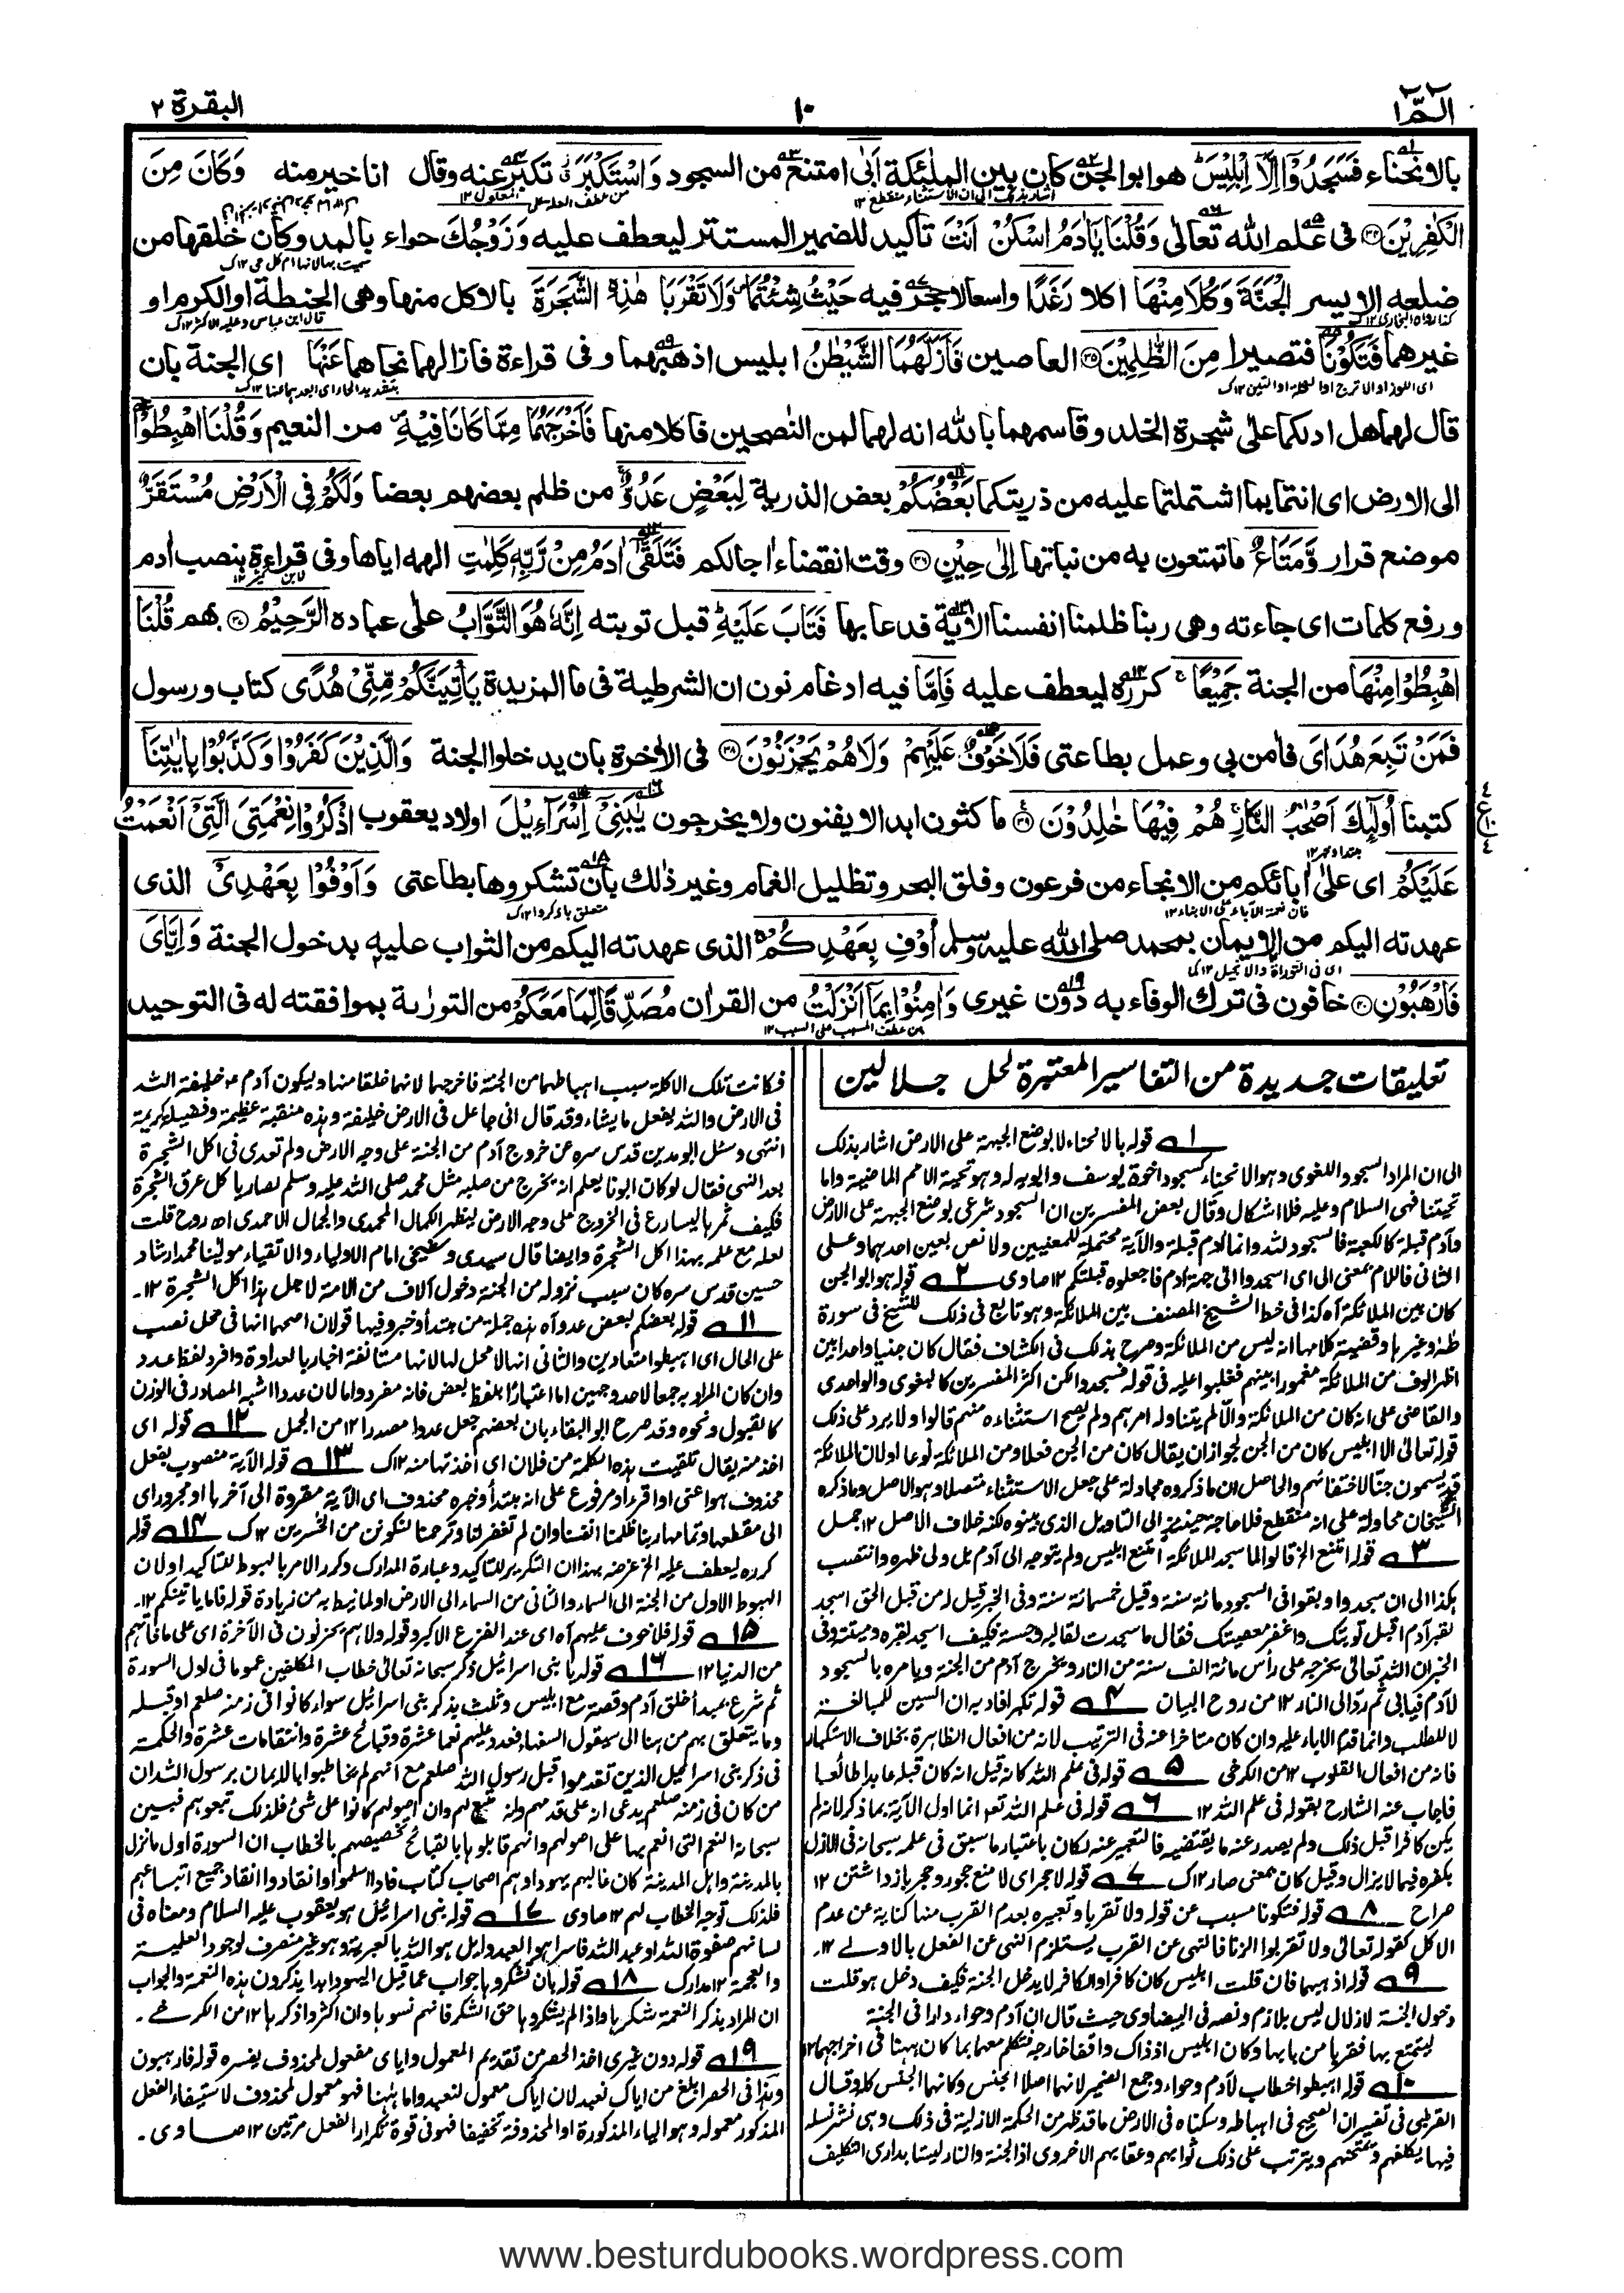 الۤمّۤ ا
١٠
البقرة ٢
بالانحناء فَسَجَدُوْٓا اِلَّآ اِبْلِيْسَ هو ابو الجن كان بين الملٰئكة اَبٰى امتنع من السجود وَاسْتَكْبَرَ تكبر عنه وقال انا خير منه وَكَانَ مِنَ
الْكٰفِرِيْنَ ۝٣٤ فى علم الله تعالى وَقُلْنَا يٰٓاٰدَمُ اسْكُنْ اَنْتَ تأكيد للضمير المستتر ليعطف عليه وَزَوْجُكَ حواء بالمد وكان خلقها من
ضلعه الايسر الْجَنَّةَ وَكُلَا مِنْهَا اكلا رَغَدًا واسعا لا حجر فيه حَيْثُ شِئْتُمَا وَلَا تَقْرَبَا هٰذِهِ الشَّجَرَةَ بالاكل منها وهى الحنطة او الكرم او
غيرهما فَتَكُوْنَا فتصيرا مِنَ الظّٰلِمِيْنَ ۝٣٥ العاصين فَاَزَلَّهُمَا الشَّيْطٰنُ ابليس اذهبهما وفى قراءة فازالهما نحاهما عَنْهَا اى الجنة بان
قال لهما هل ادلكما على شجرة الخلد وقاسمهما بالله انه لهما لمن النٰصحين فاكلا منها فَاَخْرَجَهُمَا مِمَّا كَانَا فِيْهِ من النعيم وَقُلْنَا اهْبِطُوْا
الى الارض اى انتما بما اشتملتما عليه من ذريتكما بَعْضُكُمْ بعض الذرية لِبَعْضٍ عَدُوٌّ من ظلم بعضهم بعضا وَلَكُمْ فِى الْاَرْضِ مُسْتَقَرٌّ
موضع قرار وَّمَتَاعٌ ما تمتعون به من نباتها اِلٰى حِيْنٍ ۝٣٦ وقت انقضاء اجالكم فَتَلَقّٰٓى اٰدَمُ مِنْ رَّبِّهٖ كَلِمٰتٍ الهمه اياها وفى قراءة بنصب ادم
ورفع كلمات اى جاءته وهى ربنا ظلمنا انفسنا الاٰية فدعا بها فَتَابَ عَلَيْهِ قبل توبته اِنَّهٗ هُوَ التَّوَّابُ على عباده الرَّحِيْمُ ۝٣٧ بهم قُلْنَا
اهْبِطُوْا مِنْهَا من الجنة جَمِيْعًا كرره ليعطف عليه فَاِمَّا فيه ادغام نون ان الشرطية فى ما المزيدة يَاْتِيَنَّكُمْ مِّنِّىْ هُدًى كتاب ورسول
فَمَنْ تَبِعَ هُدَاىَ فامن بى وعمل بطاعتى فَلَا خَوْفٌ عَلَيْهِمْ وَلَا هُمْ يَحْزَنُوْنَ ۝٣٨ فى الاٰخرة بان يدخلوا الجنة وَالَّذِيْنَ كَفَرُوْا وَكَذَّبُوْا بِاٰيٰتِنَآ
كتبنا اُولٰٓئِكَ اَصْحٰبُ النَّارِ هُمْ فِيْهَا خٰلِدُوْنَ ۝٣٩ ماكثون ابدا لا يفنون ولا يخرجون يٰبَنِىْٓ اِسْرَآءِيْلَ اولاد يعقوب اذْكُرُوْا نِعْمَتِىَ الَّتِىْٓ اَنْعَمْتُ
عَلَيْكُمْ اى على اٰبائكم من الانجاء من فرعون وفلق البحر وتظليل الغمام وغير ذٰلك بان تشكروها بطاعتى وَاَوْفُوْا بِعَهْدِىْٓ الذى
عهدته اليكم من الايمان بمحمد صلى الله عليه وسلم اُوْفِ بِعَهْدِكُمْ الذى عهدته اليكم من الثواب عليه بدخول الجنة وَاِيَّاىَ
فَارْهَبُوْنِ ۝٤٠ خافون فى ترك الوفاء به دون غيرى وَاٰمِنُوْا بِمَآ اَنْزَلْتُ من القراٰن مُصَدِّقًا لِّمَا مَعَكُمْ من التورٰىة بموافقته له فى التوحيد
تعليقات جديدة من التفاسير المعتبرة لحل جلالين
١ قوله بالانحناء لا بوضع الجبهة على الارض اشار بذلك
الى ان المراد السجود اللغوى وهو الانحناء كسجود اخوة يوسف وابويه له وهو تحية الامم الماضية واما
تحيتنا فهى السلام وعليه فلا اشكال وقال بعض المفسرين ان السجود شرعى بوضع الجبهة على الارض
وآدم قبلة كالكعبة فالسجود لله وانما آدم قبلة والآية محتملة للمعنيين ولا نص بعين احدهما وعلى
الثانى فاللام بمعنى الى اى اسجدوا الى جهة آدم فاجعلوه قبلتكم ١٢ صاوى ٢ قوله هو ابو الجن
كان بين الملائكة آه كذا فى خط الشيخ المصنف بين الملائكة وهو تابع فى ذلك للشيخ فى سورة
طٰهٰ وغيرها وقضية كلامهما انه ليس من الملائكة وصرح بذلك فى الكشاف فقال كان جنيا واحدا بين
اظهر الوف من الملائكة مغمورا بينهم فغلبوا عليه فى قوله فسجدوا لكن اكثر المفسرين كالبغوى والواحدى
والقاضى على انه كان من الملائكة والا لم يتناوله امرهم ولم يصح استثناءه منهم قالوا ولا يرد على ذلك
قوله تعالى الا ابليس كان من الجن لجواز ان يقال كان من الجن فعلا ومن الملائكة نوعا او لان الملائكة
قد يسمون جنا لاختفائهم والحاصل ان ما ذكروه محاولة على جعل الاستثناء متصلا وهو الاصل وما ذكره
الشيخان محاولة على انه منقطع فلا حاجة حينئذ الى التاويل الذى بينوه لكنه خلاف الاصل ١٢ جمل
٣ قوله امتنع الخ قالوا لما سجد الملائكة امتنع ابليس ولم يتوجه الى آدم بل ولى ظهره وانتصب
هكذا الى ان سجدوا وبقوا فى السجود مائة سنة وقيل خمسمائة سنة وفى الخبر قيل له من قبل الحق اسجد
لقبر آدم اقبل توبتك واغفر معصيتك فقال ما سجدت لقالبه وجسمه فكيف اسجد لقبره وميتته وفى
الخبر ان الله تعالى يخرجه على رأس مائة الف سنة من النار ويخرج آدم من الجنة ويامره بالسجود
لآدم فيابى ثم يرد الى النار ١٢ من روح البيان ٤ قوله تكبر افاد به ان السين للمبالغة
لا للطلب وانما قدم الاباء عليه وان كان متاخرا عنه فى الترتيب لانه من افعال الظاهرة بخلاف الاستكبار
فانه من افعال القلوب ١٢ من الكرخى ٥ قوله فى علم الله كانه قيل انه كان قبله عابدا طائعا
فاجاب عنه الشارح بقوله فى علم الله ١٢ ٦ قوله فى علم الله تع انما اول الآية بما ذكر لانه لم
يكن كافرا قبل ذلك ولم يصدر عنه ما يقتضيه فالتعبير عنه بكان باعتبار ما سبق فى علمه سبحانه فى الازل
بكفره فيما لا يزال وقيل كان بمعنى صار ١٢ك ٧ قوله لا حجر اى لا منع حجور وحجر باز داشتن ١٢
صراح ٨ قوله فتكونا مسبب عن قوله ولا تقربا وتعبيره بعدم القرب منها كناية عن عدم
الاكل كقوله تعالى ولا تقربوا الزنا فالنهى عن القرب يستلزم النهى عن الفعل بالاولے ١٢۔
٩ قوله اذهبهما فان قلت ابليس كان كافرا والكافر لا يدخل الجنة فكيف دخل هو قلت
دخول الجنة لازلال ليس بلازم ونصه فى البيضاوى حيث قال ان آدم وحواء دارا فى الجنة
ليتمتع بها فقربا من بابها وكان ابليس اذ ذاك واقفا خارجه فتكلم معهما بما كان ههنا فى اخراجهما ١٢
١٠ قوله اهبطوا خطاب لآدم وحواء وجمع الضمير لانهما اصلا الجنس وكانهما الجنس كله وقال
القرطبى فى تفسيره ان الصحيح فى اهباطه وسكناه فى الارض ما قد ظهر من الحكمة الازلية فى ذلك وهى نشر نسله
فيها يكلفهم ويمتحنهم ويترتب على ذلك ثوابهم وعقابهم الاخروى اذ الجنة والنار ليستا بدارى التكليف
فكانت تلك الاكلة سبب اهباطهما من الجنة فاخرجهما لانهما خلقا منها وليكون آدم خليفة الله
فى الارض والله يفعل ما يشاء وقد قال انى جاعل فى الارض خليفة وهذه منقبة عظيمة وفضيلة كريمة
انتهى وسئل ابو مدين قدس سره عن خروج آدم من الجنة على وجه الارض ولم تعدى فى اكل الشجرة
بعد النهى فقال لو كان ابونا يعلم انه يخرج من صلبه مثل محمد صلى الله عليه وسلم لصار يأكل عرق الشجرة
فكيف ثمرها ليسارع فى الخروج على وجه الارض ليظهر الكمال المحمدى والجمال الاحمدى اھ روح قلت
لعله مع علمه بهذا اكل الشجرة وايضا قال سيدى وشيخى امام الاولياء والاتقياء مولينا محمد ارشاد
حسين قدس سره كان سبب نزوله من الجنة دخول آلاف من الامة لاجل هذا اكل الشجرة ١٢۔
١١ قوله بعضكم لبعض عدو آه هذه جملة من مبتدأ وخبر وفيها قولان اصحهما انها فى محل نصب
على الحال اى اهبطوا متعادين والثانى انها لا محل لها لانها مستانفة اخبار بالعداوة وافرد لفظ عدو
وان كان المراد به جمعا لاحد وجهين اما اعتبارا بلفظ بعض فانه مفرد واما لان عدوا اشبه المصادر فى الوزن
كالقبول ونحوه وقد صرح ابو البقاء بان بعضهم جعل عدوا مصدرا ١٢ من الجمل ١٢ قوله اى
اخذ منه يقال تلقيت هذه الكلمة من فلان اى اخذتها منه ١٢ك ١٣ قوله الآية منصوب بفعل
محذوف هو اعنى او اقرء او مرفوع على انه مبتدأ وخبره محذوف اى الآية مقروة الى آخرها او مجرور اى
الى مقطعها وتمامها ربنا ظلمنا انفسنا وان لم تغفر لنا وترحمنا لنكونن من الخسرين ١٢ك ١٤ قوله
كرره ليعطف عليه الخ غرضه بهذا ان التكرير للتاكيد وعبارة المدارك وكرر الامر بالهبوط للتاكيد او لان
الهبوط الاول من الجنة الى السماء والثانى من السماء الى الارض او لما نيط به من زيادة قوله فاما ياتينكم ١٢۔
١٥ قوله فلا خوف عليهم آه اى عند الفزع الاكبر وقوله ولا هم يحزنون فى الآخرة اى على ما فاتهم
من الدنيا ١٢ ١٦ قوله يا بنى اسرائيل ذكر سبحانه تعالى خطاب المكلفين عموما فى اول السورة
ثم شرع بمبدأ خلق آدم وقصته مع ابليس وثلث بذكر بنى اسرائيل سواء كانوا فى زمنه صلعم او قبله
وما يتعلق بهم من هنا الى سيقول السفهاء فعدد عليهم نعما عشرة وقبائح عشرة وانتقامات عشرة والحكمة
فى ذكر بنى اسرائيل الذين تقدموا قبل رسول الله صلعم مع انهم لم يخاطبوا بالايمان برسول الله ان
من كان فى زمنه صلعم يدعى انه على قدمهم وانه متبع لهم وان اصولهم كانوا على شئ فلذلك تبعوهم فبين
سبحانه النعم التى انعم بها على اصولهم وانهم قابلوها بالقبائح تخصيصهم بالخطاب ان السورة اول ما نزل
بالمدينة واهل المدينة كان غالبهم يهود وهم اصحاب كتاب فاذا اسلموا وانقادوا انقاد جميع اتباعهم
فلذلك توجه الخطاب لهم ١٢ صاوى ١٧ قوله بنى اسرائيل هو يعقوب عليه السلام ومعناه فى
لسانهم صفوة الله او عبد الله فاسرا هو العبد وايل هو الله بالعبرية وهو غير منصرف لوجود العلمية
والعجمة ١٢ مدارك ١٨ قوله بان تشكروها جواب عما قيل اليهود ابدا يذكرون هذه النعمة والجواب
ان المراد بذكر النعمة شكرها واذا لم يشكروها حق الشكر فانهم نسوها وان اكثروا ذكرها ١٢ من الكرخے۔
١٩ قوله دون غيرى اخذ الحصر من تقديم المعمول واياى مفعول لمحذوف يفسره قوله فارهبون
وهذا فى الحصر ابلغ من اياك نعبد لان اياك معمول لنعبد واما ههنا فهو معمول لمحذوف لاستيفاء الفعل
المذكور معموله وهو الياء المذكورة او المحذوفة تخفيفا فهو فى قوة تكرار الفعل مرتين ١٢ صاوى۔
www.besturdubooks.wordpress.com